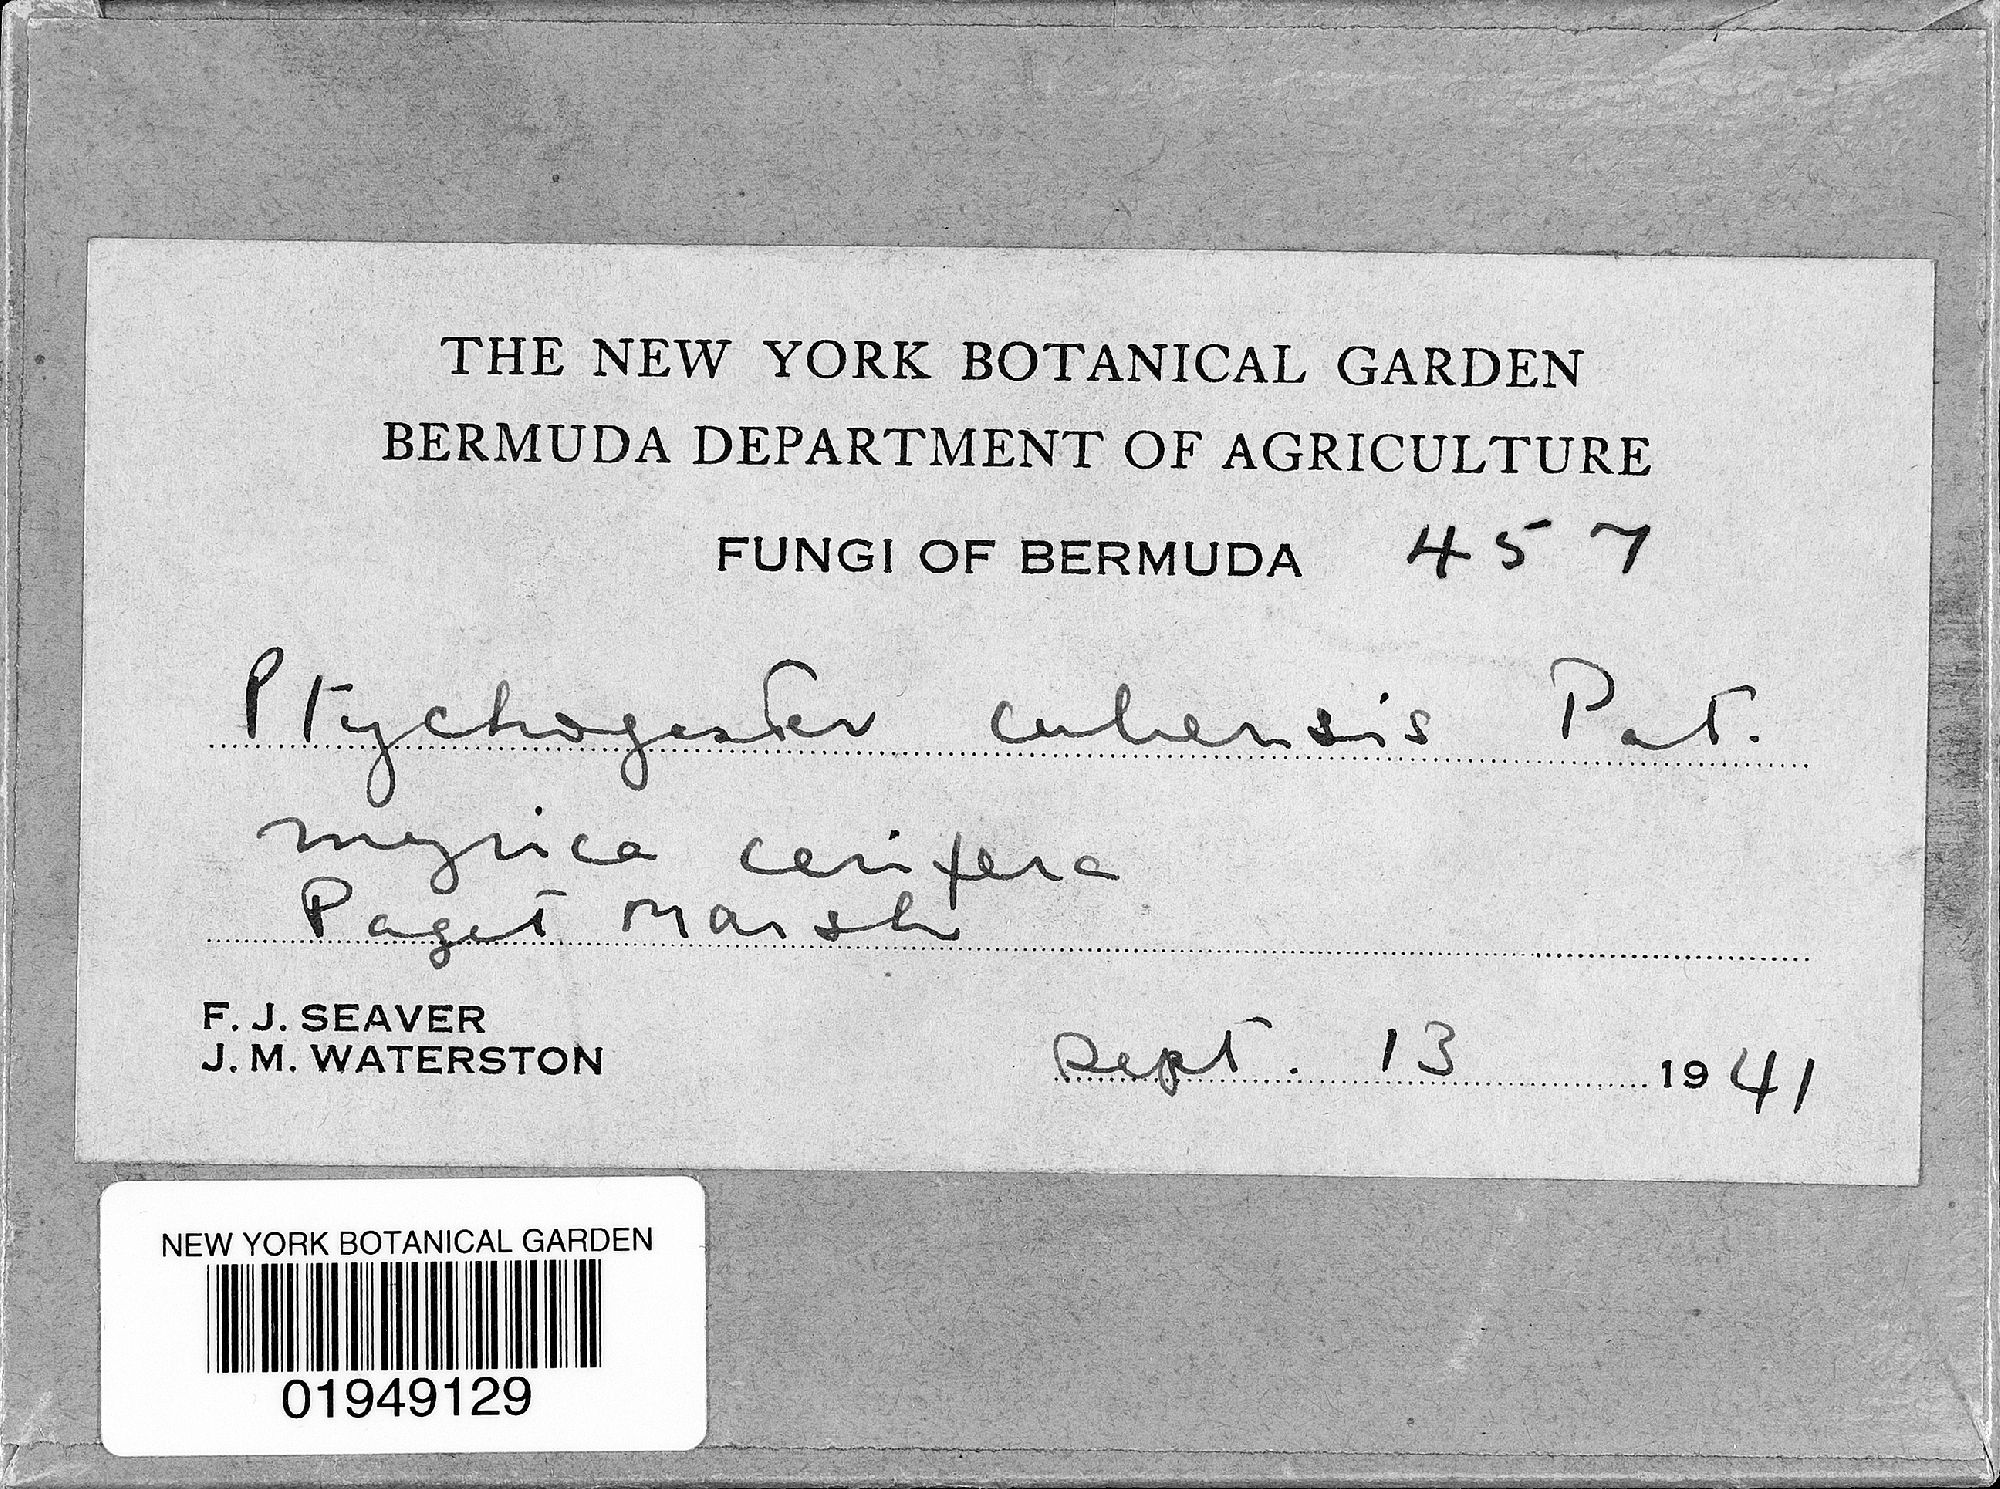 THE NEW YORK BOTANICAL GARDEN
BERMUDA DEPARTMENT OF AGRICULTURE
FUNGI OF BERMUDA 457
Ptychogaster cubensis Pat.
myrica cerifera
Paget Marsh
F. J. SEAVER
J. M. WATERSTON
Sept. 13 1941
NEW YORK BOTANICAL GARDEN
01949129